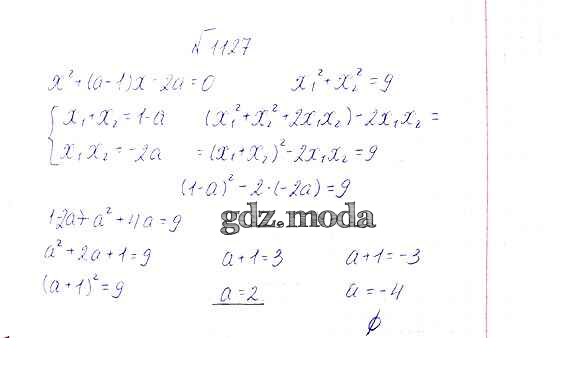 №1127
x² + (a-1)x - 2a = 0    x₁² + x₂² = 9
{ x₁ + x₂ = 1-a    (x₁² + x₂² + 2x₁x₂) - 2x₁x₂ =
x₁x₂ = -2a    = (x₁ + x₂)² - 2x₁x₂ = 9
(1-a)² - 2·(-2a) = 9
1-2a + a² + 4a = 9
gdz.moda
a² + 2a + 1 = 9    a + 1 = 3    a + 1 = -3
(a + 1)² = 9    a = 2    a = -4
ϕ